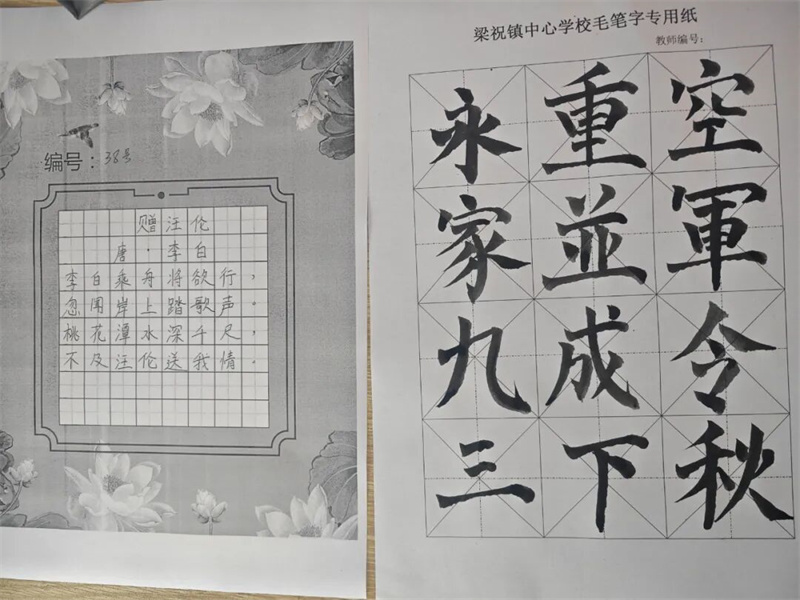 编号：38号
赠汪伦
唐·李白
李白乘舟将欲行，
忽闻岸上踏歌声。
桃花潭水深千尺，
不及汪伦送我情。
梁祝镇中心学校毛笔字专用纸
教师编号：
空軍令秋
重並成下
永家九三